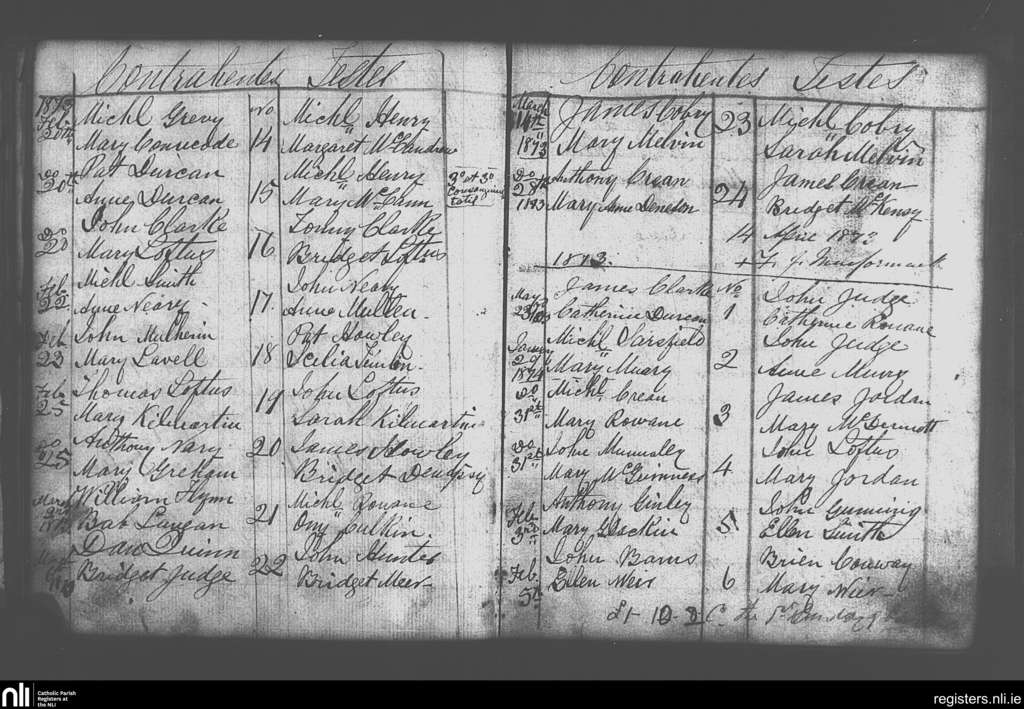 Contrahentes Testes
1873 Michl Grevy No Michl Henry
Feb 20th Mary Conucode 14 Margaret McLandrew
Do 20th Pat Durcan Michl Henry 3o et 3o
Agnes Durcan 15 Mary McCann
John Clarke Tommy Clarke
Do 20 Mary Loftus 16 Bridget Loftus
Michl Smith John Neary
Feb 22 Anne Neary 17 Anne Mullen
Feb John Mulherin Pat Howley
23 Mary Lavell 18
Feb Thomas Loftus John Loftus
25 Mary Kilmartin 19 Sarah Kilmartin
Anthony Nary 20 James Howley
25 Mary Greham Bridget Dempsy
William Flynn Michl Rowane
Bab Langan 21 Culkin
Dan Quinn John Hunter
Bridget Judge 22 Bridget Meer
Contrahentes Testes
March 14th James Cobry 23 Michl Cobry
1873 Mary Melvin Sarah Melvin
Do Anthony Crean James Crean
28th 1873 Mary Anne 24 Bridget McKensy
14 April 1873
1873 + F.
May James Clarke No John Judge
Catherine Durcan 1 Catherine Rowane
Michl Sarsfield John Judge
1874 Mary Muary 2 Anne Murry
Do Michl Crean James Jordan
31st Mary Rowane 3 Mary McDermott
Do John Munnely John Loftus
31st Mary McGuinness 4 Mary Jordan
Feb Anthony Ginley John Gumming
3rd Mary Gasckin 5 Ellen Smith
Feb John Barns Brien Conway
5th Ellen Weir 6 Mary Weir
nli Catholic Parish Registers at the NLI
registers.nli.ie